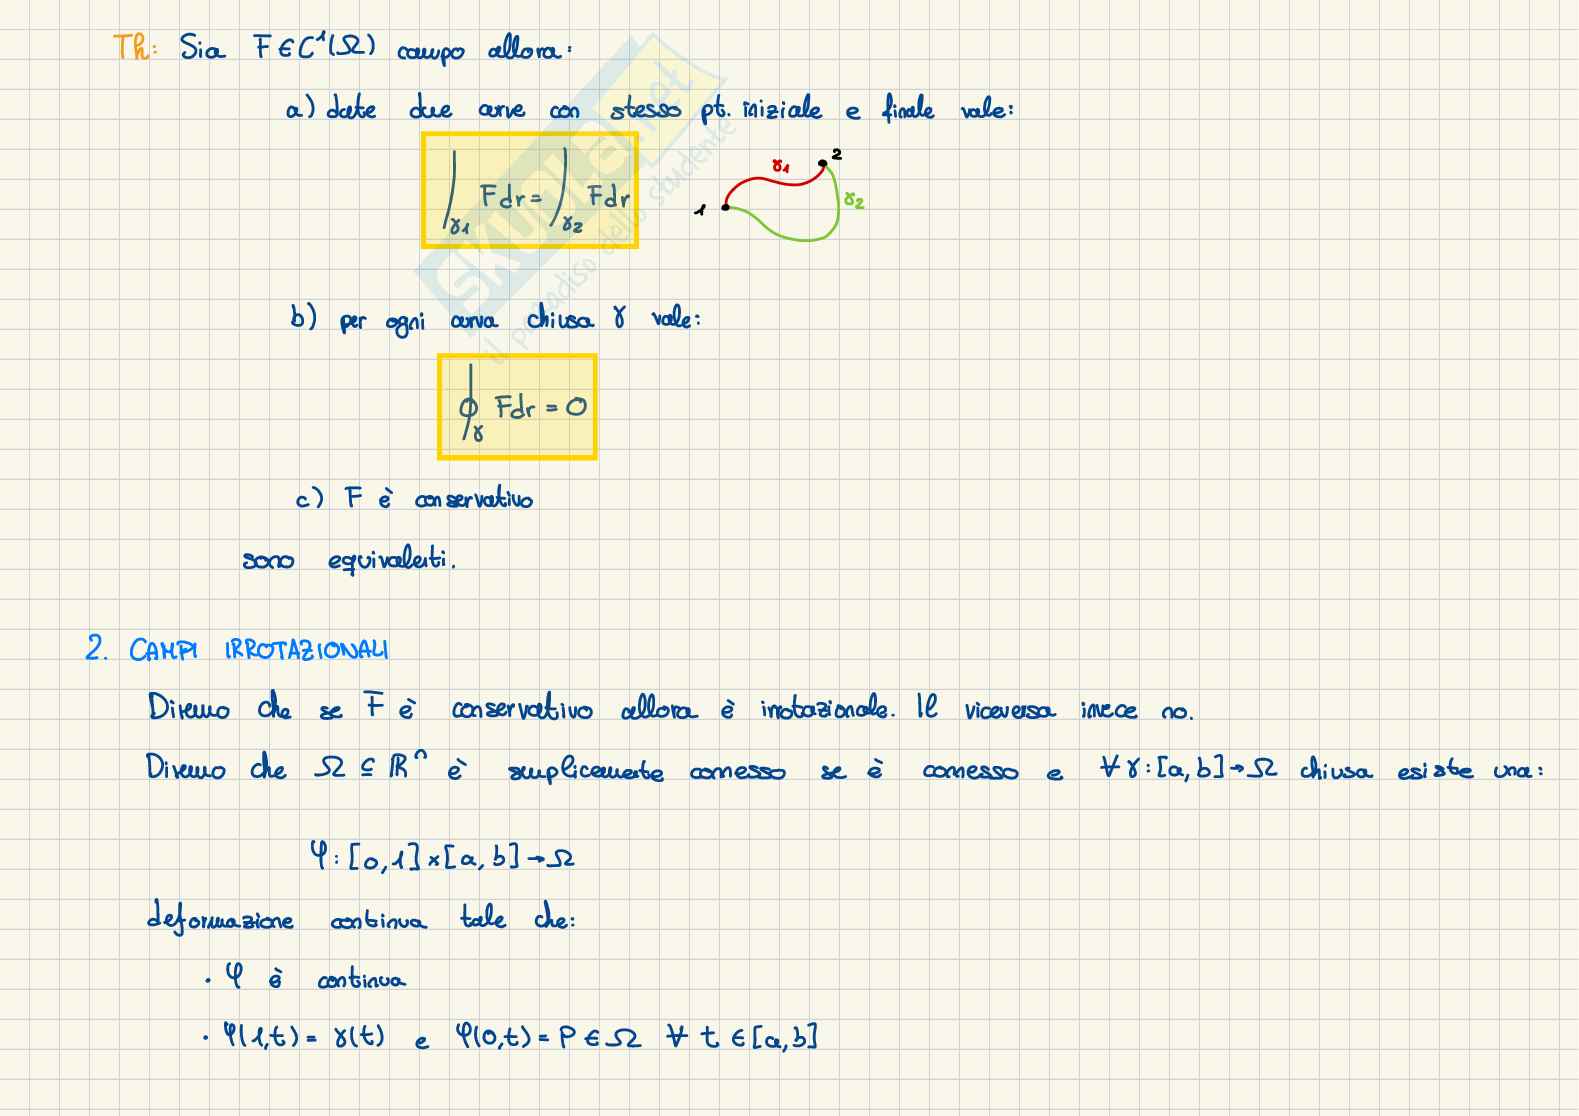 Th: Sia F ∈ C¹(Ω) campo allora:
a) date due curve con stesso pt. iniziale e finale vale:
∫γ1 Fdr = ∫γ2 Fdr
1 γ1 2 γ2
b) per ogni curva chiusa γ vale:
∮γ Fdr = 0
c) F è conservativo
sono equivalenti.
2. CAMPI IRROTAZIONALI
Diremo che se F è conservativo allora è irrotazionale. Il viceversa invece no.
Diremo che Ω ⊆ ℝⁿ è semplicemente connesso se è connesso e ∀ γ: [a,b] → Ω chiusa esiste una:
φ: [0,1] × [a,b] → Ω
deformazione continua tale che:
· φ è continua
· φ(1,t) = γ(t) e φ(0,t) = P ∈ Ω ∀ t ∈ [a,b]
skuola.net
il paradiso dello studente